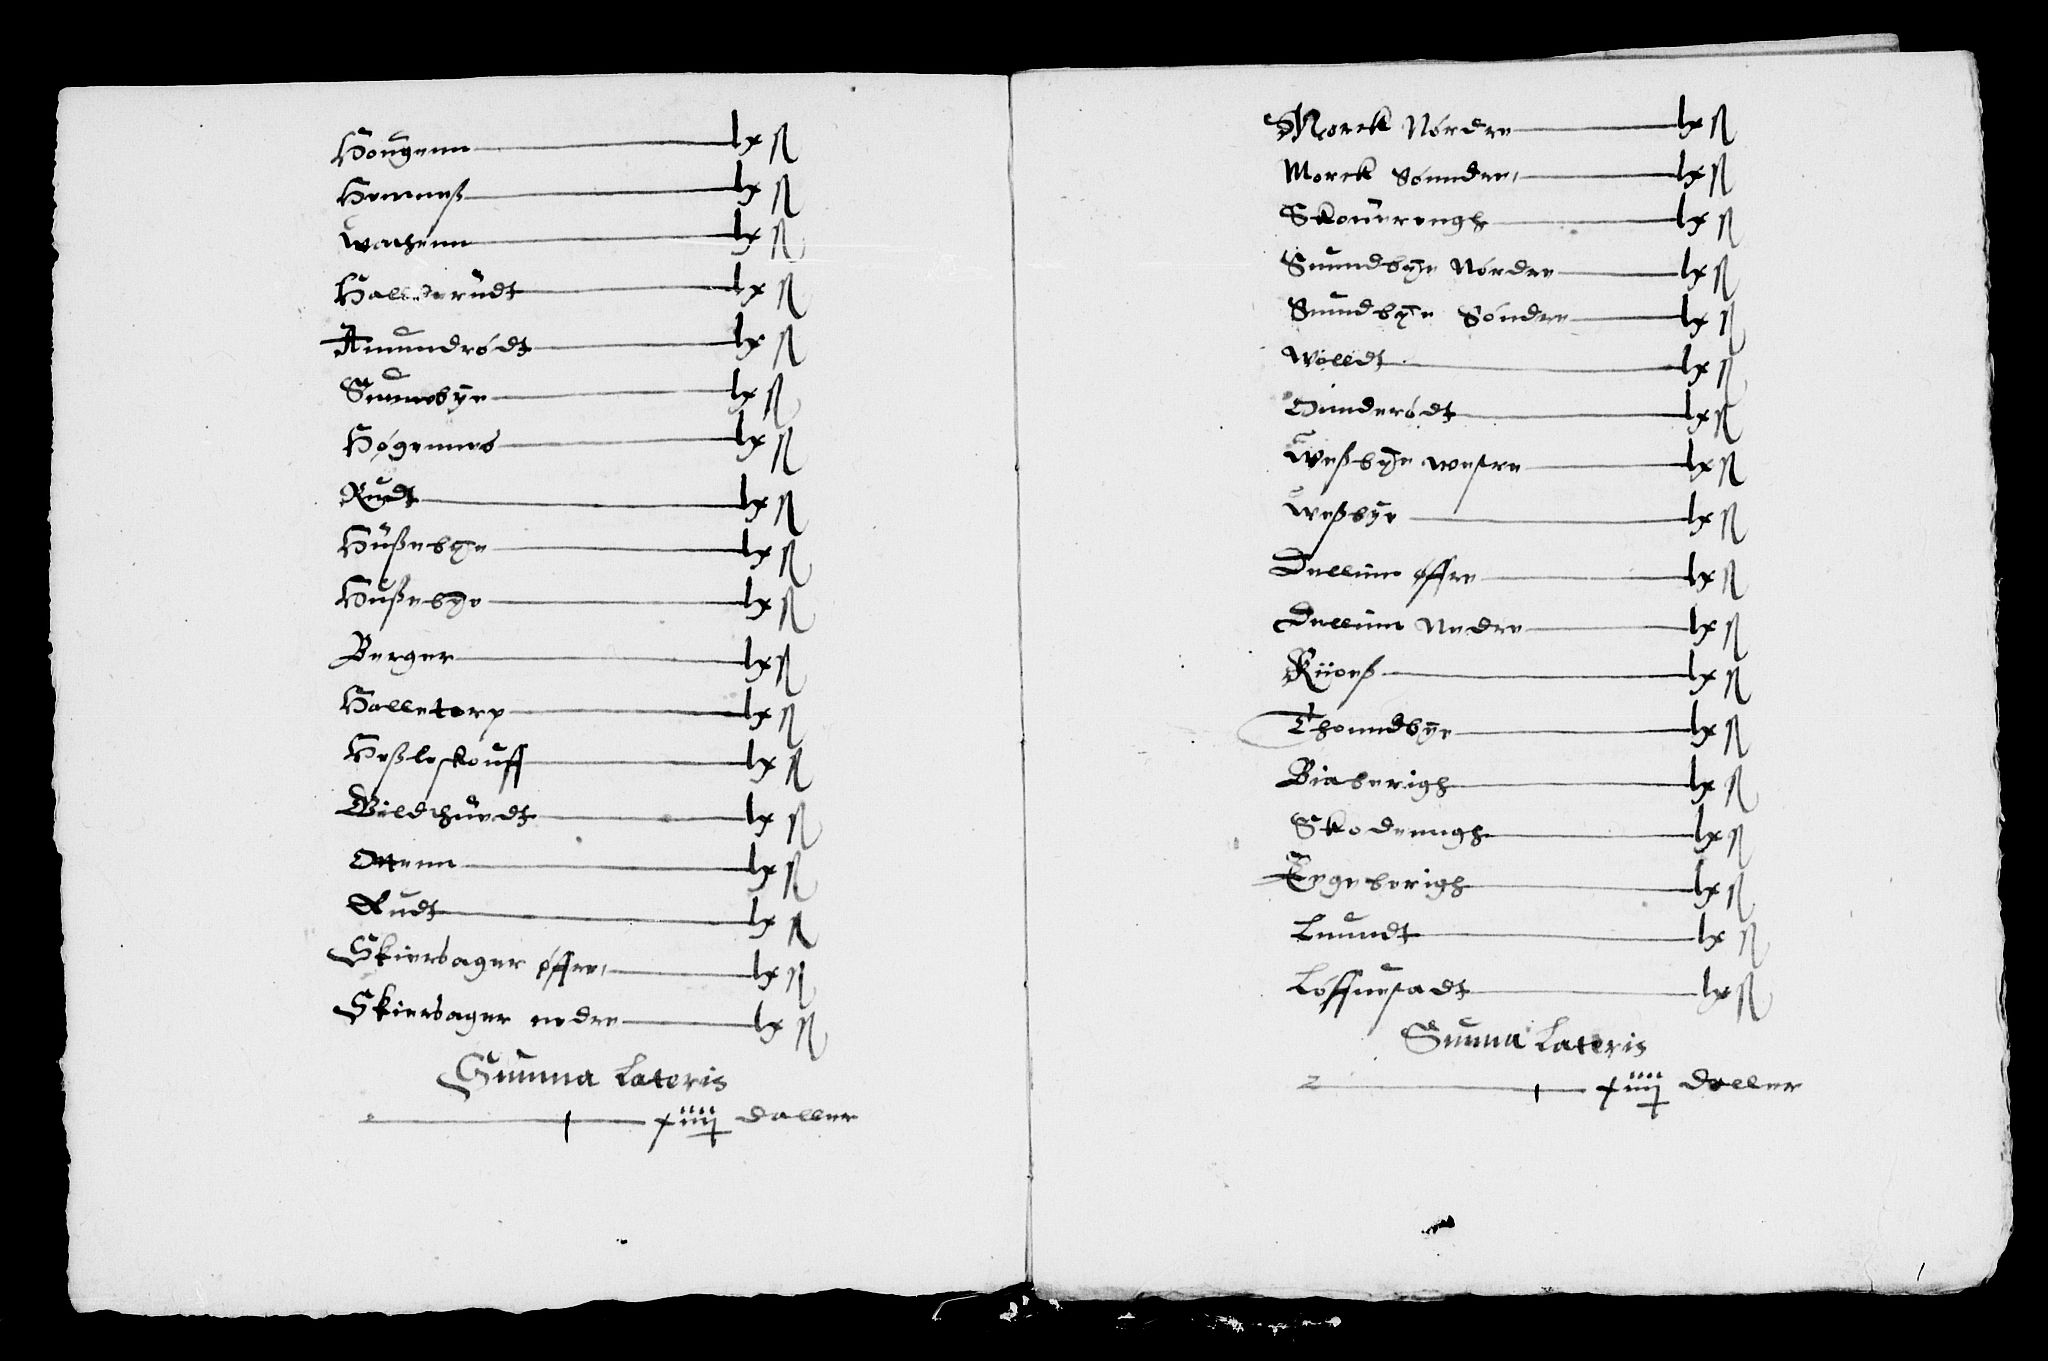 Hougenn lx ß
Hemneß lx ß
Wachenn lx ß
Hallderudt lx ß
Amundrødt lx ß
Sunnebye lx ß
Høgennes lx ß
Rudt lx ß
Hußebye lx ß
Hußebye lx ß
Berger lx ß
Halletorp lx ß
Heßleskouff lx ß
Ottenn lx ß
Rudt lx ß
Skiersager øffre lx ß
Skiersager nedre lx ß
Summa Lateris
xiiij daller
Morck Nórdre lx ß
Morck Sónndre lx ß
Skouerengh lx ß
Sunndbye Nórdre lx ß
Sundbye Sóndre lx ß
Wolldt lx ß
Hunderødt lx ß
Weßbye westre lx ß
Weßbye lx ß
Dellinn øffre lx ß
Dellinn Nedre lx ß
Riioeß lx ß
Thonndbye lx ß
Biaberigh lx ß
Skodenngh lx ß
Egeberigh lx ß
Lunndt lx ß
Løffuestadt lx ß
Summa Lateris
xiiij daller